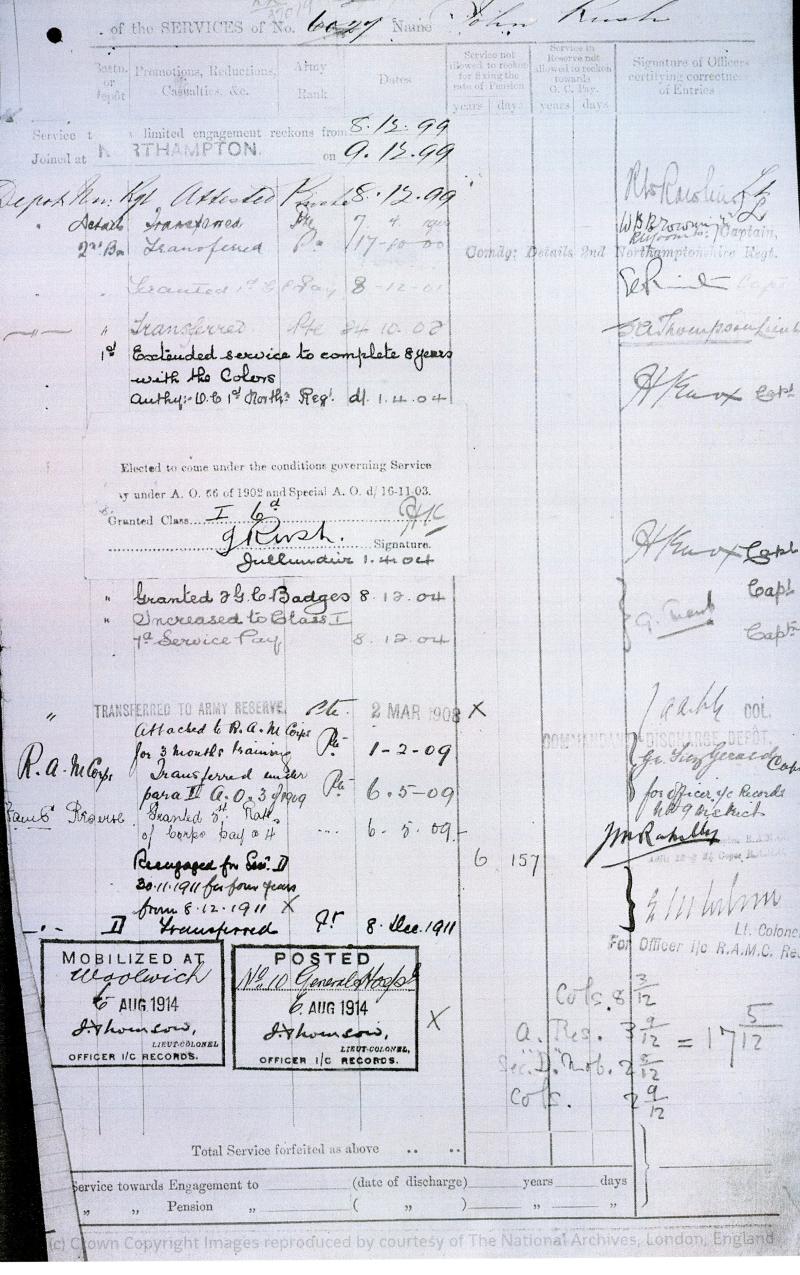 of the SERVICES of No. 6027 Name John Rush
Battn. or Depôt
Promotions, Reductions, Casualties, &c.
Army Rank
Dates
Service not allowed to reckon for fixing the rate of Pension
years days
Service in Reserve not allowed to reckon towards G. C. Pay.
years days
Signature of Officers certifying correctness of Entries
Service limited engagement reckons from 8.12.99
Joined at NORTHAMPTON. on 9.12.99
Depot Attested Private 8.12.99
Transferred Pte 7 4
2nd Bn Transferred 17-10-00
Captain,
Comdg: Details 2nd Northamptonshire Regt.
Granted 1st G C Pay 8-12-01
Capt
" Transferred Pte 24 10.02
S A Thompson Lieut
1st Extended service to complete 8 years
with the Colors
Authy:- O.C 1st North'n Regt d/. 1.4.04
H Knox Capt
Elected to come under the conditions governing Service
under A. O. 66 of 1902 and Special A. O. d/ 16-11-03.
Granted Class I 6d HK
J Rush. Signature.
Jullundur 1.4.04
H Knox Capt
" Granted 2 G.C Badges 8.12.04
Capt
" Increased to Class I
7d Service Pay 8.12.04
Capt
" TRANSFERRED TO ARMY RESERVE. Pte. 2 MAR 1908 X
COL.
COMMANDANT DISCHARGE DEPÔT.
R.A.M Corps
Attached to R.A.M Corps
for 3 months training Pte 1-2-09
Transferred under
para II A.O. 3 of 1909 Pte 6.5-09
Capt
for Officer i/c Records
No 9 District
Reserve. Granted Rate
of Corps Pay @ 4 .... 6.5.09
6 157
Reengaged for Sec. D
30.11.1911 for four years
from 8.12.1911 X
II Transferred Pr 8 Dec. 1911
Lt. Colonel
For Officer i/c R.A.M.C. Re
MOBILIZED AT
Woolwich
6 AUG 1914
J. Thomson,
LIEUT-COLONEL
OFFICER I/C RECORDS.
POSTED
No. 10 General Hospl
6 AUG 1914
J. Thomson,
LIEUT-COLONEL,
OFFICER I/C RECORDS.
X
Cols. 8 3/12
A. Res. 3 9/12
Sec. "D" Mob. 2 8/12
Cols. 2 9/12
= 17 5/12
Total Service forfeited as above .. ..
Service towards Engagement to (date of discharge) years days
" " Pension " ( " ) " "
(c) Crown Copyright Images reproduced by courtesy of The National Archives, London, England